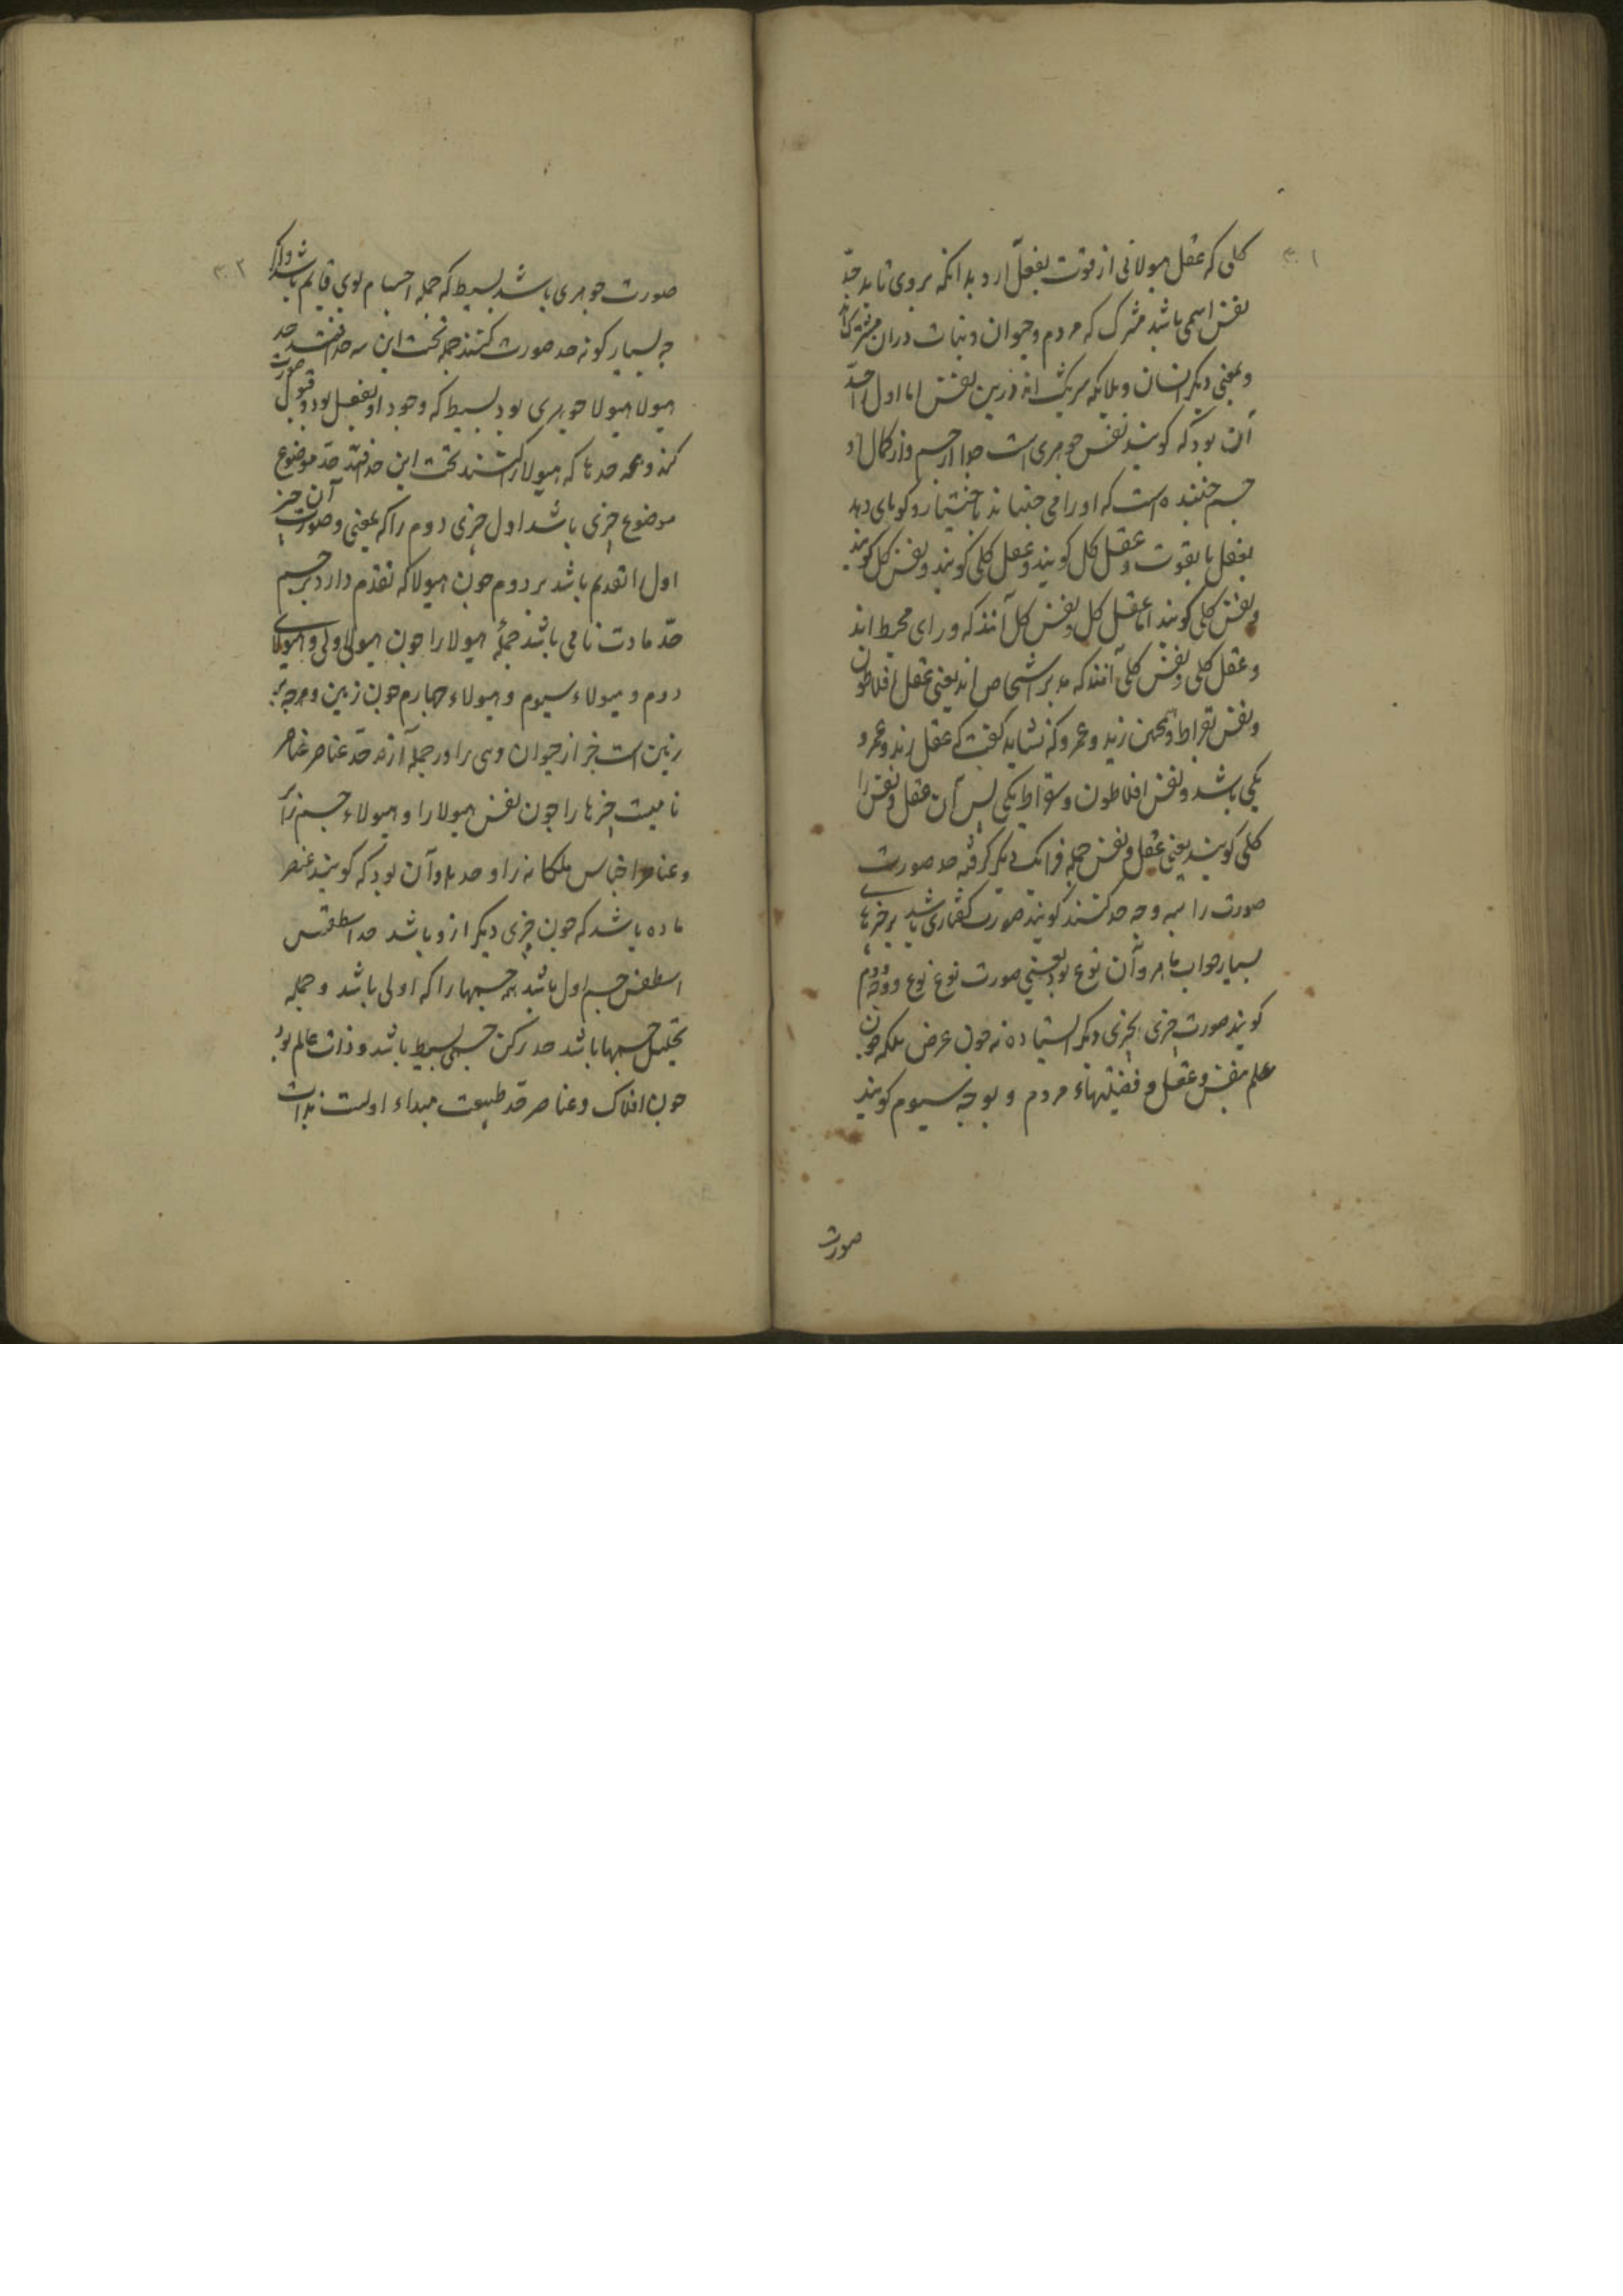 ۳۰۱
کلی که عقل هیولانی از قوت بفعل ارد بدانکه بر وی تابد حدّ
نفس اسمی باشد مشرک که مردم و حیوان و نبات دران مشترک اند
و بمعنی دیکر انسان و ملایکه شریک اند درین نفس اما اول را حدّ
آن بود که کویند نفس جوهری است جدا از جسم و از کمال او
جسم جنبنده است که اورا می جنباند باختیار و کوبای دهد
بفعل یا بقوت و عقل کل کویند و عقل کلی کویند و نفس کل کویند
و نفس کلی کویند اما عقل کل و نفس کل آنند که ورای محیط اند
و عقل کلی و نفس کلی آنند که مدبر اشخاص اند یعنی عقل افلاطون
و نفس بقراط و همچنین زید و عمرو که نشاید کفت که عقل زید و عمرو
یکی باشد و نفس افلاطون و سقراط یکی پس آن عقل و نفس را
کلی کویند یعنی عقل و نفس جمله فرا یک دیکر کرفته حد صورت
صورت را بسه وجه حد کنند کویند صورت کفتاری باشد بر چیزهای
بسیار جواب ما هو و آن نوع بود یعنی صورت نوع نوع و وجه دوم
کویند صورت چیزی بچیزی دیکر ایستاده نه چون عرض بلکه چون
علم بنفس و عقل و فضیلتهاء مردم و بوجه سیوم کویند
صورت
۳۰۲
صورت جوهری باشد بسیط که جمله اجسام بوی قایم باشد و اکر
چه بسیار کونه حد صورت کنند جمله تحت این سه حد افتند حد
هیولا هیولا جوهری بود بسیط که وجود او بفعل بود و قبول صورت
کند و همه حدها که هیولا را کنند تحت این حد افتد حدّ موضوع
موضوع چیزی باشد اول چیزی دوم را که بمعنی و صورت آن چیز
اول را تقدم باشد بر دوم چون هیولا که تقدم دارد بر جسم
حدّ مادت نامی باشد جملهٔ هیولا را چون هیولی اولی و هیولای
دوم و هیولاء سیوم و هیولاء چهارم چون زمین و هرچه بر
زمین است جز از حیوان و وی را در جمله آرند حدّ عناصر عناصر
نامیست چیزها را چون نفس هیولا را و هیولاء جسم را
و عناصر اجناس ملکانه را و حد او آن بود که کویند عنصر
ماده باشد که چون چیزی دیکر ازو باشد حد اسطقس
اسطقس جسم اول باشد همه جسمها را که اولی باشد و جمله
تحلیل جسمها باشد حد رکن جسمی بسیط باشد و ذات عالم بود
چون افلاک و عناصر حدّ طبیعت مبداء اولست بذات